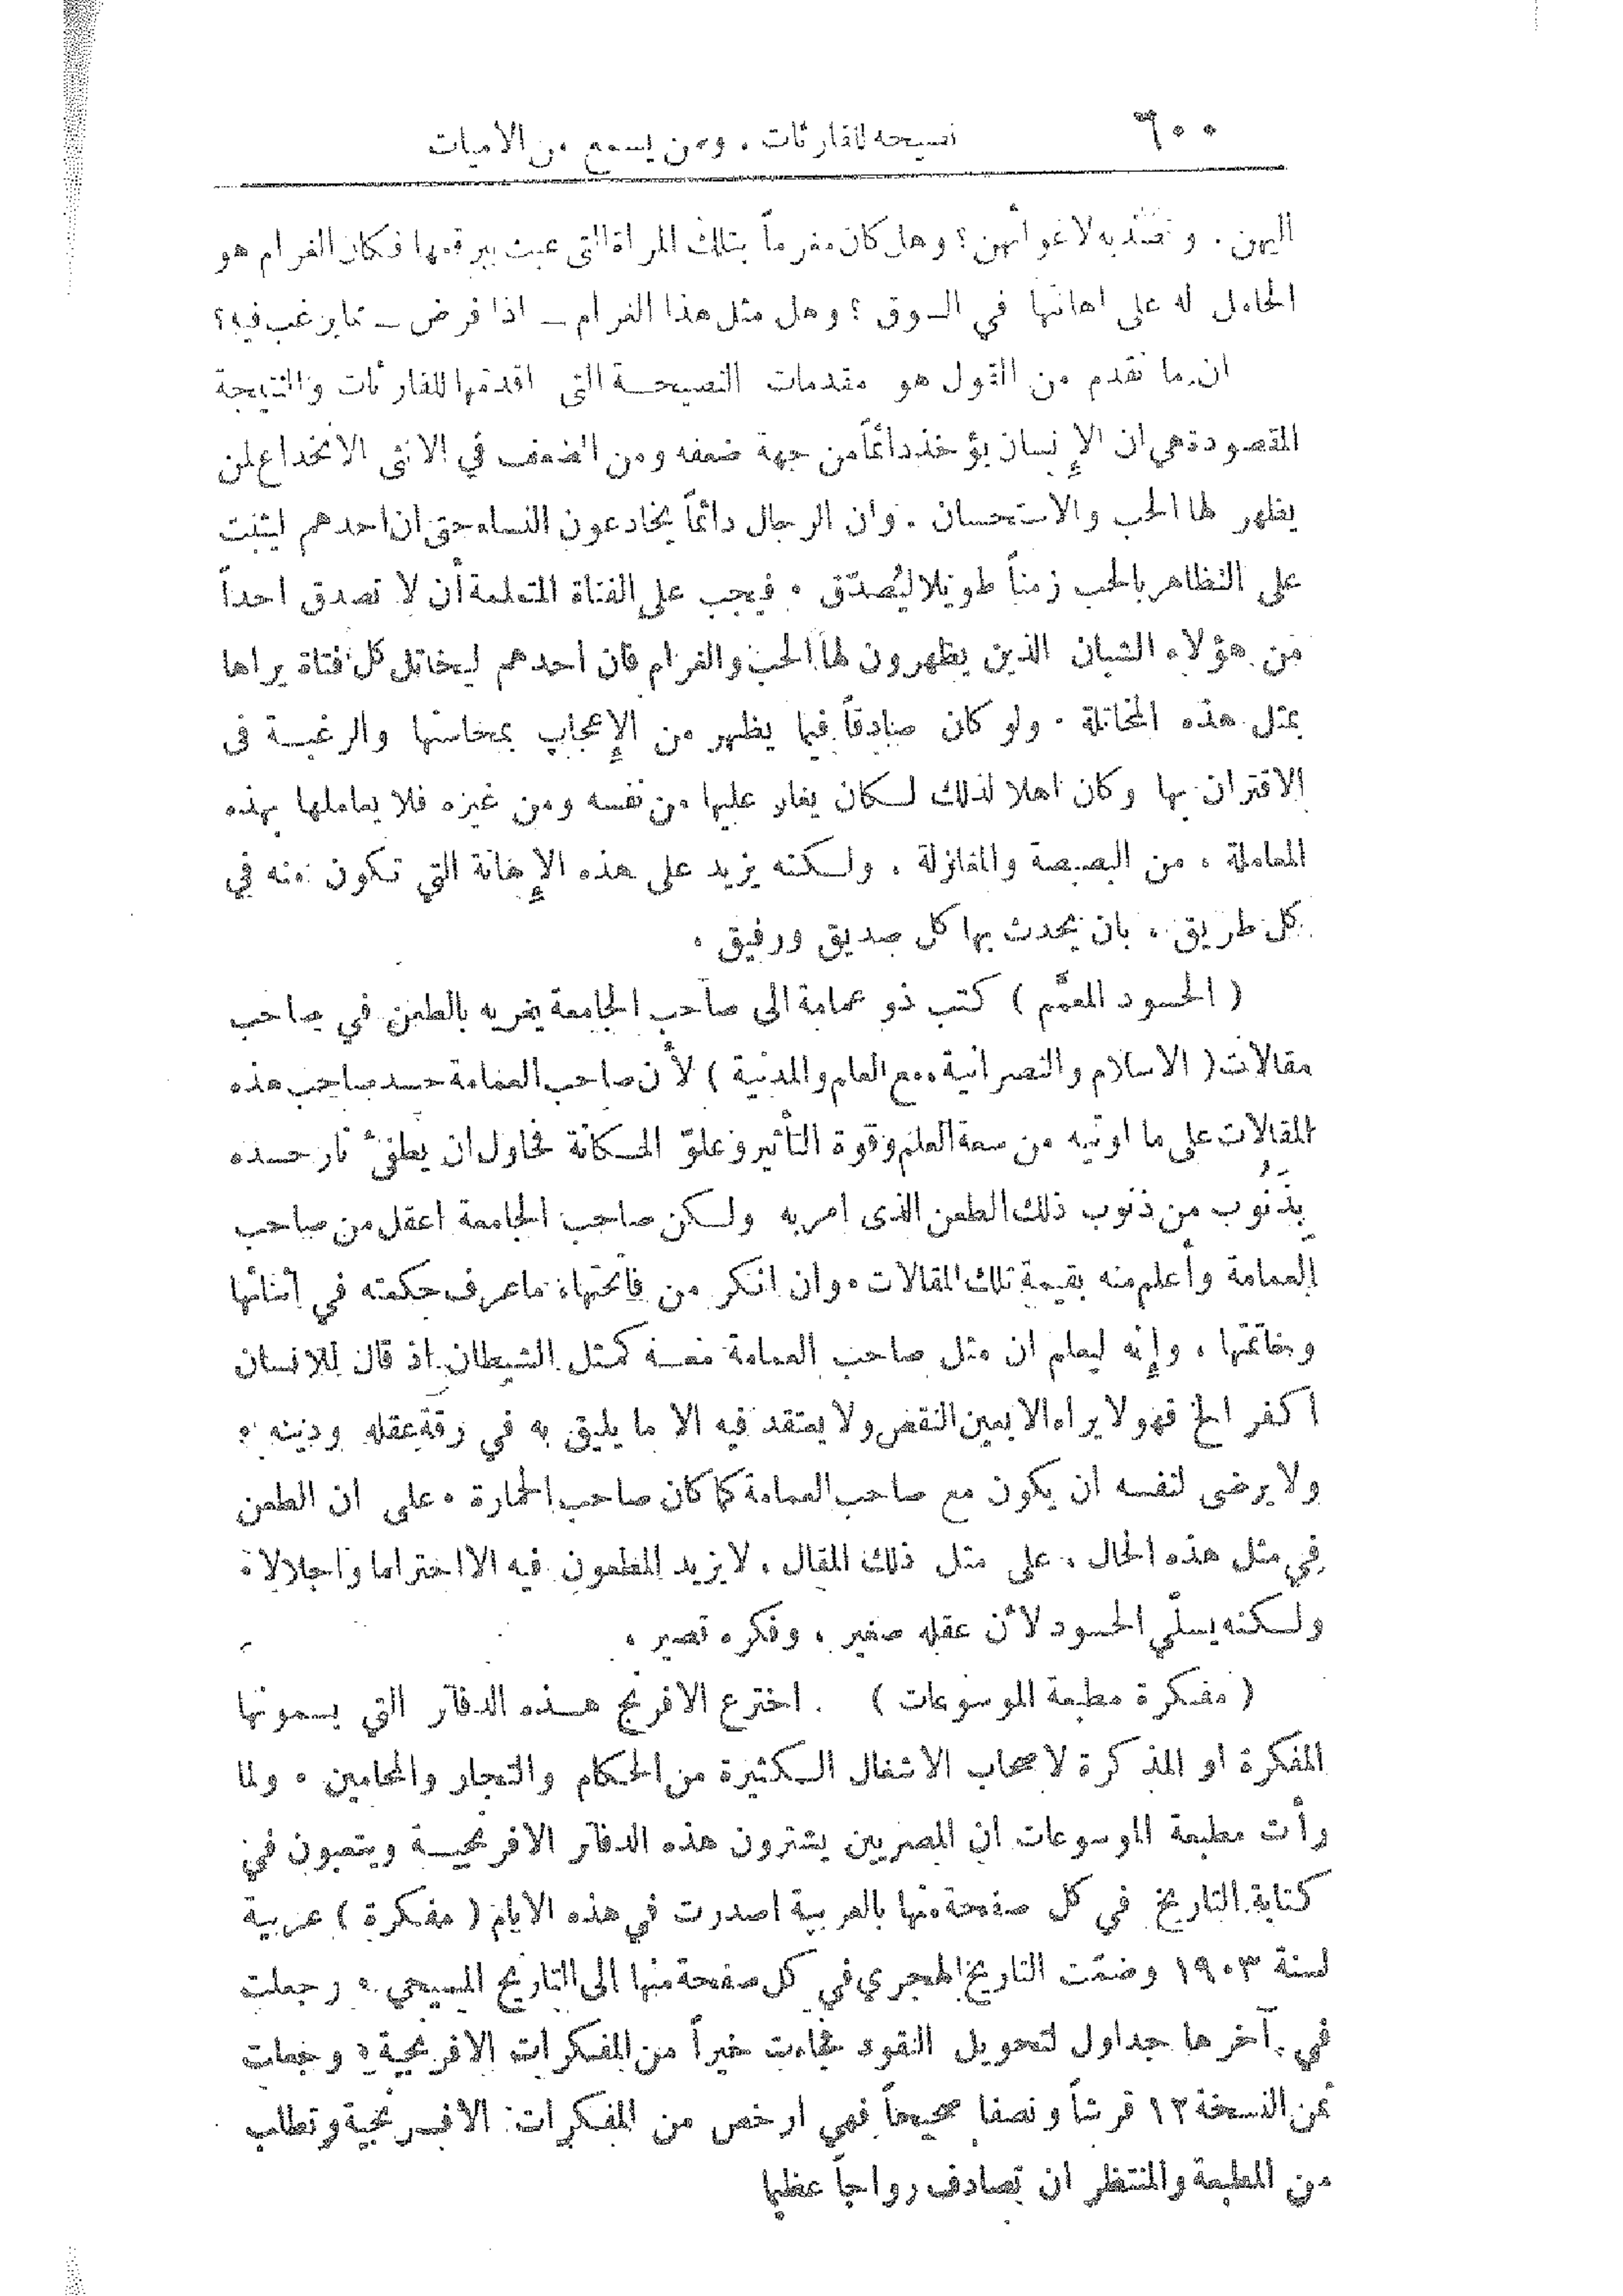 ٦٠٠
نصيحه للقارئات . ومن يسمع من الاميات
اليهن . وتصديه لاغوائهن ؟ وهل كان مغرماً بتلك المرأة التي عبث ببرقعها فكان الغرام هو
الحامل له على اهانتها في السوق ؟ وهل مثل هذا الغرام ــ اذا فرض ــ مما يرغب فيه ؟
ان ما تقدم من القول هو مقدمات النصيحة التي اقدمها للقارئات والنتيجة
المقصودة هي ان الإنسان يؤخذ دائماً من جهة ضعفه ومن الضعف في الانثى الانخداع لمن
يظهر لها الحب والاستحسان . وان الرجال دائماً يخادعون النساء حتى ان احدهم ليثبت
على التظاهر بالحب زمناً طويلا ليُصدّق . فيجب على الفتاة المتعلمة أن لا تصدق احداً
من هؤلاء الشبان الذين يظهرون لها الحب والغرام فان احدهم ليخاتل كل فتاة يراها
بمثل هذه المخاتلة . ولو كان صادقاً فيما يظهر من الإعجاب بمحاسنها والرغبة في
الاقتران بها وكان اهلا لذلك لكان يغار عليها من نفسه ومن غيره فلا يعاملها بهذه
المعاملة . من البصبصة والمغازلة . ولكنه يزيد على هذه الإهانة التي تكون منه في
كل طريق . بان يحدث بها كل صديق ورفيق .
( الحسود المعمَّم ) كتب ذو عمامة الى صاحب الجامعة يغريه بالطعن في صاحب
مقالات ( الاسلام والنصرانية مع العلم والمدنية ) لأن صاحب العمامة حسد صاحب هذه
المقالات على ما اوتيه من سعة العلم وقوة التأثير وعلوّ المكانة فحاول ان يطفئ نار حسده
بِذَنُوب من ذنوب ذلك الطعن الذى امر به ولكن صاحب الجامعة اعقل من صاحب
العمامة وأعلم منه بقيمة تلك المقالات . وان انكر من فاتحتها ما عرف حكمته في أثنائها
وخاتمتها . وإنه ليعلم ان مثل صاحب العمامة معه كمثل الشيطان اذ قال للانسان
اكفر الخ فهو لا يراه الا بعين النقص ولا يعتقد فيه الا ما يليق به في رقة عقله ودينه .
ولا يرضى لنفسه ان يكون مع صاحب العمامة كما كان صاحب الحمارة . على ان الطعن
في مثل هذه الحال . على مثل ذلك المقال . لا يزيد المطعون فيه الا احتراما واجلالا .
ولكنه يسلّي الحسود لأن عقله صغير . وفكره قصير .
( مفكرة مطبعة الموسوعات ) . اخترع الافرنج هذه الدفاتر التي يسمونها
المفكرة او المذكرة لاصحاب الاشغال الكثيرة من الحكام والتجار والمحامين . ولما
رأت مطبعة الموسوعات ان المصريين يشترون هذه الدفاتر الافرنجية ويتعبون في
كتابة التاريخ في كل صفحة منها بالعربية اصدرت في هذه الايام ( مفكرة ) عربية
لسنة ١٩٠٣ وضمّت التاريخ الهجري في كل صفحة منها الى التاريخ المسيحي . وجعلت
في آخرها جداول لتحويل النقود فجاءت خيراً من المفكرات الافرنجية . وجعلت
ثمن النسخة ١٢ قرشاً ونصفا صحيحاً فهي ارخص من المفكرات الافرنجية وتطلب
من المطبعة والمنتظر ان تصادف رواجاً عظيما